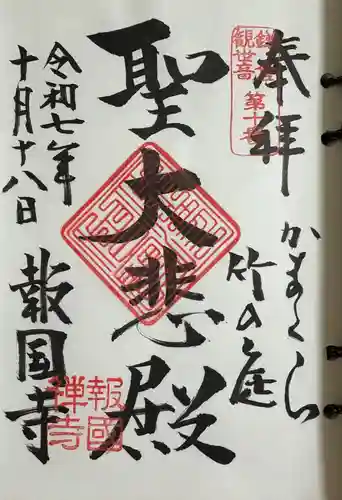 奉拝
かまくら
竹の庭
聖大悲殿
報国寺
令和七年
十月十八日
観世音
第十番
報國
禅寺